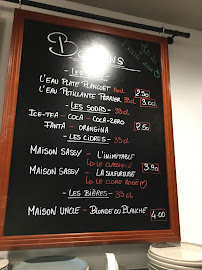 Boissons
L'EAU PLATE PLANCOET 50cl 2.50
L'EAU PETILLANTE PERRIER 33cl 3.00
- LES SODAS - 33cl
ICE-TEA - COCA - COCA-ZERO
FANTA - ORANGINA 2.50
- LES CIDRES - 33cl
MAISON SASSY - L'INIMITABLE
↳ LE CLASSIQUE
MAISON SASSY - LA SULFUREUSE 3.90
↳ LE CIDRE ROSÉ ♡
- LES BIÈRES - 33cl
MAISON UNCLE - BLONDE OU BLANCHE 4.00